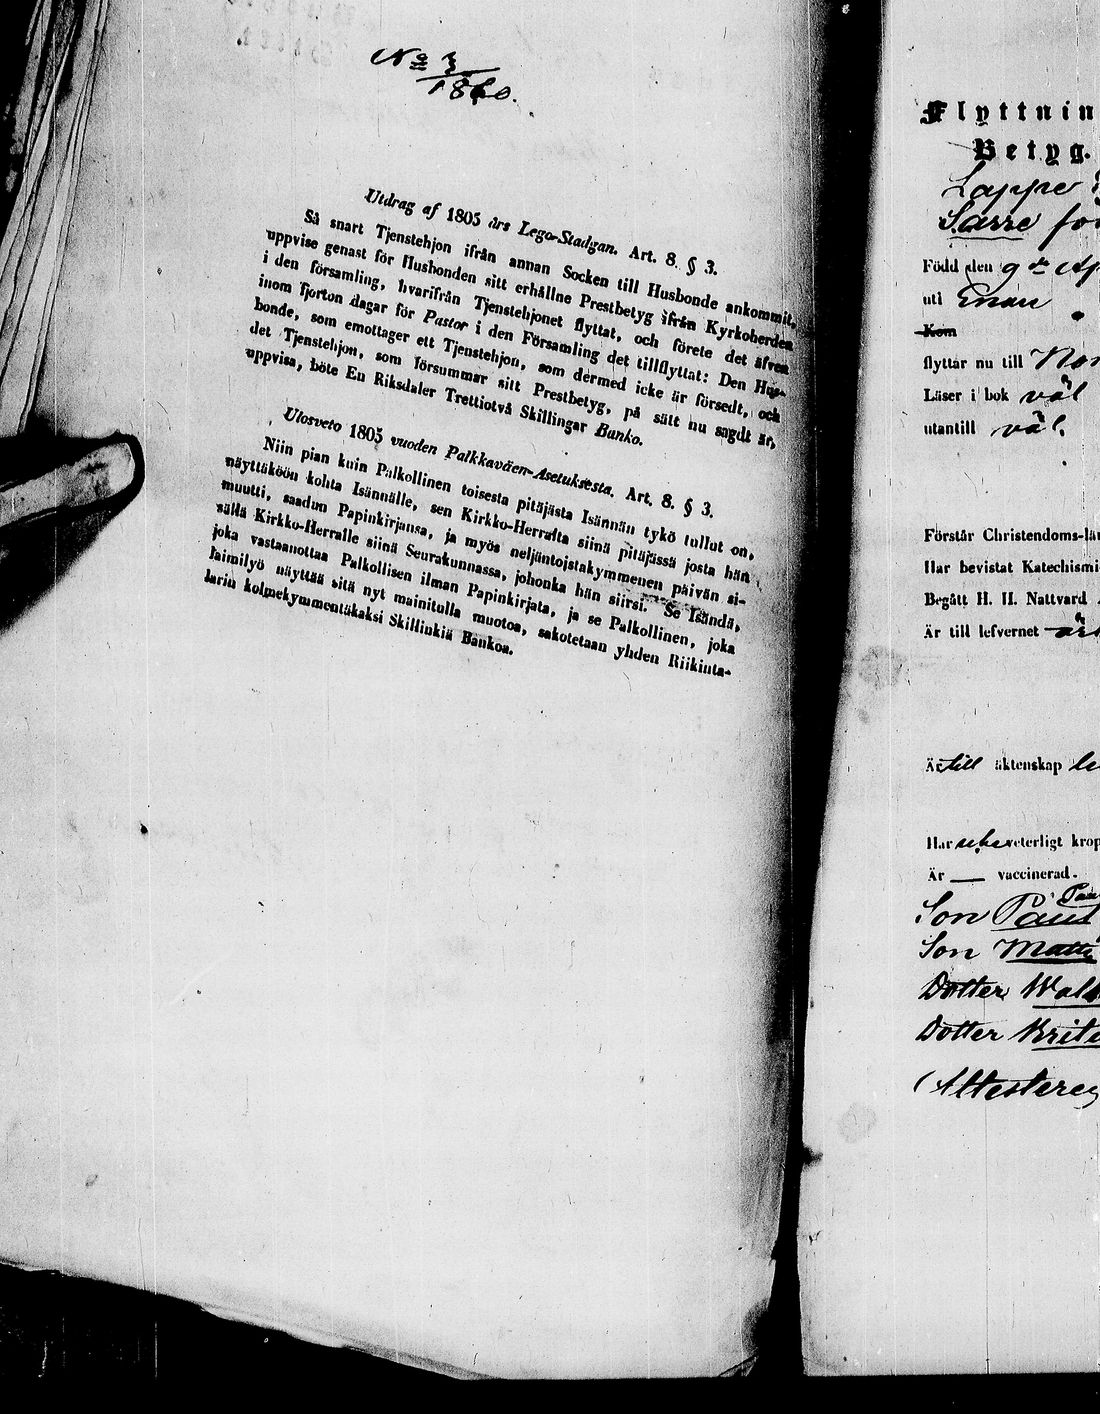 No 3
1860.
Utdrag af 1805 års Lego-Stadgan. Art. 8. § 3.
Så snart Tjenstehjon ifrån annan Socken till Husbonde ankommit,
uppvise genast för Husbonden sitt erhållne Prestbetyg ifrån Kyrkoherden
i den församling, hvarifrån Tjenstehjonet flyttat, och förete det äfven
inom fjorton dagar för Pastor i den Församling det tillflyttat: Den Hus-
bonde, som emottager ett Tjenstehjon, som dermed icke är försedt, och
det Tjenstehjon, som försummar sitt Prestbetyg, på sätt nu sagdt är,
uppvisa, böte En Riksdaler Trettiotvå Skillingar Banko.
Ulosveto 1805 vuoden Palkkaväen-Asetuksesta. Art. 8. § 3.
Niin pian kuin Palkollinen toisesta pitäjästä Isännän tykö tullut on,
näyttäköön kohta Isännälle, sen Kirkko-Herralta siinä pitäjässä josta hän
muutti, saadun Papinkirjansa, ja myös neljäntoistakymmenen päivän si-
sällä Kirkko-Herralle siinä Seurakunnassa, johonka hän siirsi. Se Isändä,
joka vastaanottaa Palkollisen ilman Papinkirjata, ja se Palkollinen, joka
laimilyö näyttää sitä nyt mainitulla muotoa, sakotetaan yhden Riikinta-
larin kolmekymmentäkaksi Skillinkiä Bankoa.
Flyttnin
Betyg.
Lappe
Sarre fö
Född den 9de Ap
uti Enau
Kom
flyttar nu till Nor
Läser i bok väl
utantill väl.
Förstår Christendoms-lä
Har bevistat Katechismi
Begått H. H. Nattvard
Är till lefvernet
Är till äktenskap le
Har veterligt krop
Är — vaccinerad.
Son Paul
Son Matti
Dotter Wal
Dotter Krit
Attesterea